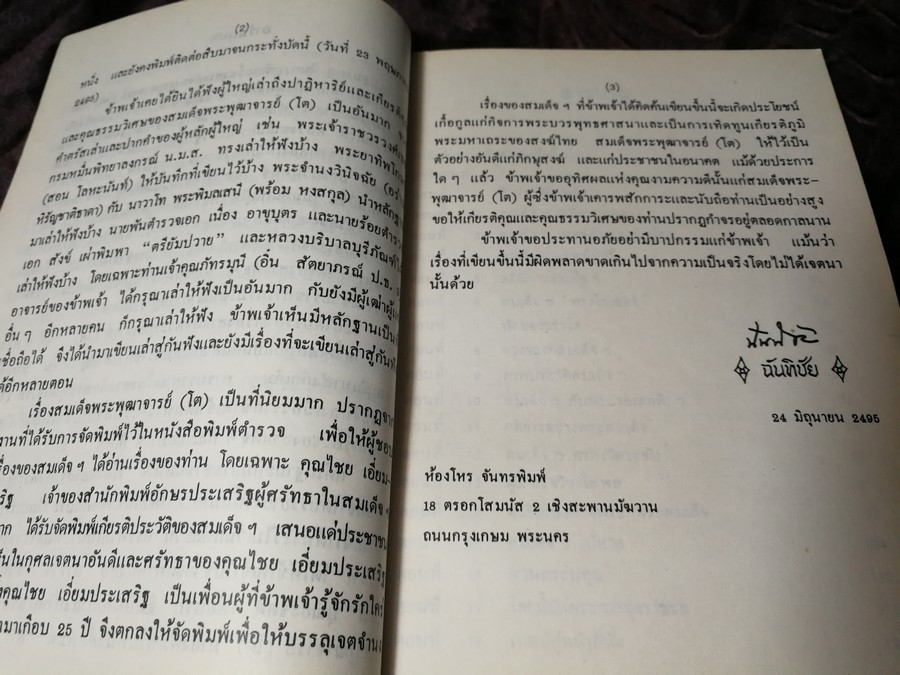 (2)
หนึ่ง และยังคงพิมพ์ติดต่อสืบมาจนกระทั่งบัดนี้ (วันที่ 23 พฤษภา
2495)
ข้าพเจ้าเคยได้ยินได้ฟังผู้ใหญ่เล่าถึงปาฏิหาริย์และเกียรติ
และคุณธรรมวิเศษของสมเด็จพระพุฒาจารย์ (โต) เป็นอันมาก
ดำรัสเล่าและปากคำของผู้หลักผู้ใหญ่ เช่น พระเจ้าราชวรวงศ์
กรมหมื่นพิทยาลงกรณ์ น.ม.ส. ทรงเล่าให้ฟังบ้าง พระยาทิพโกษา
(สอน โลหะนันท์) ให้บันทึกที่เขียนไว้บ้าง พระจำนงวินิจฉัย
หิรัญชาติธาดา) กับ นาวาโท พระพิมลเสนี (พร้อม หงสกุล) นำหลักฐาน
มาเล่าให้ฟังบ้าง นายพันตำรวจเอก เนื่อง อาขุบุตร และนายร้อยตำรวจ
เอก สังข์ เผ่าพิมพา “ตรียัมปวาย” และหลวงบริบาลบุรีภัณฑ์
เล่าให้ฟังบ้าง โดยเฉพาะท่านเจ้าคุณภัทรมุนี (อิ๋น สัตยาภรณ์ ป.ธ.
อาจารย์ของข้าพเจ้า ได้กรุณาเล่าให้ฟังเป็นอันมาก กับยังมีผู้เฒ่าผู้แก่
อื่น ๆ อีกหลายคน ก็กรุณาเล่าให้ฟัง ข้าพเจ้าเห็นมีหลักฐานเป็นที่
เชื่อถือได้ จึงได้นำมาเขียนเล่าสู่กันฟังและยังมีเรื่องที่จะเขียนเล่าสู่กัน
ได้อีกหลายตอน
เรื่องสมเด็จพระพุฒาจารย์ (โต) เป็นที่นิยมมาก ปรากฏจาก
งานที่ได้รับการจัดพิมพ์ไว้ในหนังสือพิมพ์ตำรวจ เพื่อให้ผู้ชอบ
เรื่องของสมเด็จ ฯ ได้อ่านเรื่องของท่าน โดยเฉพาะ คุณไชย เอี่ยม-
เจ้าของสำนักพิมพ์อักษรประเสริฐผู้ศรัทธาในสมเด็จ ฯ
ได้รับจัดพิมพ์เกียรติประวัติของสมเด็จ ฯ เสนอแด่ประชาชน
ในกุศลเจตนาอันดีและศรัทธาของคุณไชย เอี่ยมประเสริฐ
คุณไชย เอี่ยมประเสริฐ เป็นเพื่อนผู้ที่ข้าพเจ้ารู้จักรักใคร่
มาเกือบ 25 ปี จึงตกลงให้จัดพิมพ์เพื่อให้บรรลุเจตจำน
(3)
เรื่องของสมเด็จ ฯ ที่ข้าพเจ้าได้คิดค้นเขียนขึ้นนี้จะเกิดประโยชน์
เกื้อกูลแก่กิจการพระบวรพุทธศาสนาและเป็นการเทิดทูนเกียรติภูมิ
พระมหาเถระของสงฆ์ไทย สมเด็จพระพุฒาจารย์ (โต) ให้ไว้เป็น
ตัวอย่างอันดีแก่ภิกษุสงฆ์ และแก่ประชาชนในอนาคต แม้ด้วยประการ
ใด ๆ แล้ว ข้าพเจ้าขออุทิศผลแห่งคุณงามความดีนั้นแก่สมเด็จพระ-
พุฒาจารย์ (โต) ผู้ซึ่งข้าพเจ้าเคารพสักการะและนับถือท่านเป็นอย่างสูง
ขอให้เกียรติคุณและคุณธรรมวิเศษของท่านปรากฏกำจรอยู่ตลอดกาลนาน
ข้าพเจ้าขอประทานอภัยอย่ามีบาปกรรมแก่ข้าพเจ้า แม้นว่า
เรื่องที่เขียนขึ้นนี้มีผิดพลาดขาดเกินไปจากความเป็นจริงโดยไม่ได้เจตนา
นั้นด้วย
ฉันทิชัย
24 มิถุนายน 2495
ห้องโหร จันทรพิมพ์
18 ตรอกโสมนัส 2 เชิงสะพานมัฆวาน
ถนนกรุงเกษม พระนคร